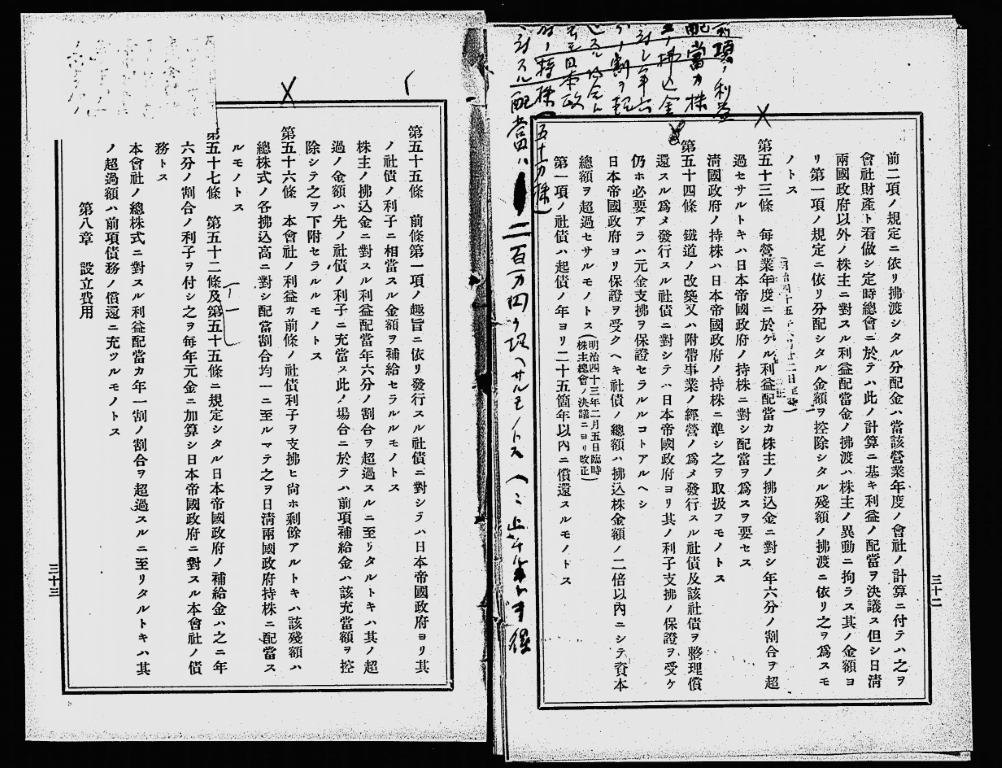 前二項ノ規定ニ依リ拂渡シタル分配金ハ當該營業年度ノ會社ノ計算ニ付テハ之ヲ
會社財產ト看做シ定時總會ニ於テハ此ノ計算ニ基キ利益ノ配當ヲ決議ス但シ日淸
兩國政府以外ノ株主ニ對スル利益配當金ノ拂渡ハ株主ノ異動ニ拘ラス其ノ金額ヨ
リ第一項ノ規定ニ依リ分配シタル金額ヲ控除シタル殘額ノ拂渡ニ依リ之ヲ爲スモ
ノトス
第五十三條 每營業年度ニ於ケル利益配當カ株主ノ拂込金ニ對シ年六分ノ割合ヲ超
過セサルトキハ日本帝國政府ノ持株ニ對シ配當ヲ爲スヲ要セス
淸國政府ノ持株ハ日本帝國政府ノ持株ニ準シ之ヲ取扱フモノトス
第五十四條 鐵道ノ改築又ハ附帶事業ノ經營ノ爲メ發行スル社債及該社債ヲ整理償
還スル爲メ發行スル社債ニ對シテハ日本帝國政府ヨリ其ノ利子支拂ノ保證ヲ受ケ
仍ホ必要アラハ元金支拂ヲ保證セラルルコトアルヘシ
日本帝國政府ヨリ保證ヲ受クヘキ社債ノ總額ハ拂込株金額ノ二倍以內ニシテ資本
總額ヲ超過セサルモノトス(明治四十三年二月五日臨時株主總會ノ決議ニヨリ改正)
第一項ノ社債ハ起債ノ年ヨリ二十五箇年以內ニ償還スルモノトス
三十二
前項ノ利益
配當カ株
拂込金
割ヲ
日本政
持株(五十万株)
對スル配當ハ二百万円
第五十五條 前條第一項ノ趣旨ニ依リ發行スル社債ニ對シテハ日本帝國政府ヨリ其
ノ社債ノ利子ニ相當スル金額ヲ補給セラルルモノトス
株主ノ拂込金ニ對スル利益配當年六分ノ割合ヲ超過スルニ至リタルトキハ其ノ超
過ノ金額ハ先ノ社債ノ利子ニ充當ス此ノ場合ニ於テハ前項補給金ハ該充當額ヲ控
除シテ之ヲ下附セラルルモノトス
第五十六條 本會社ノ利益カ前條ノ社債利子ヲ支拂ヒ尙ホ剩餘アルトキハ該殘額ハ
總株式ノ各拂込高ニ對シ配當割合均一ニ至ルマテ之ヲ日淸兩國政府持株ニ配當ス
ルモノトス
第五十七條 第五十二條及第五十五條ニ規定シタル日本帝國政府ノ補給金ハ之ニ年
六分ノ割合ノ利子ヲ付シ之ヲ每年元金ニ加算シ日本帝國政府ニ對スル本會社ノ債
務トス
本會社ノ總株式ニ對スル利益配當カ年一割ノ割合ヲ超過スルニ至リタルトキハ其
ノ超過額ハ前項債務ノ償還ニ充ツルモノトス
第八章 設立費用
三十三